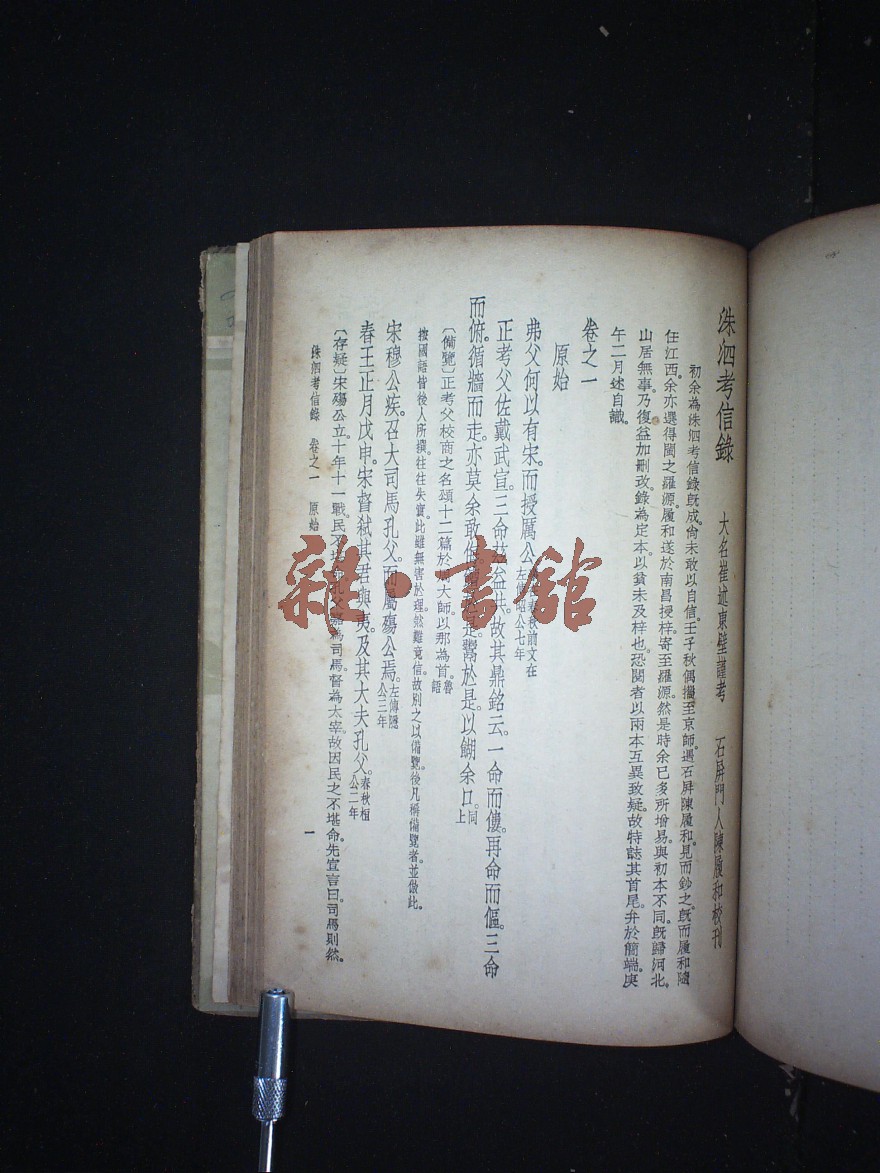 洙泗考信錄 大名崔述東壁謹考 石屏門人陳履和校刊
初余為洙泗考信錄旣成。尙未敢以自信。壬子秋偶攜至京師。遇石屏陳履和。見而鈔之。旣而履和隨
任江西。余亦選得閩之羅源。履和遂於南昌授梓。寄至羅源。然是時余已多所增易。與初本不同。旣歸河北。
山居無事。乃復益加刪改。錄為定本。以貧未及梓也。恐閱者以兩本互異致疑。故特誌其首尾。弁於簡端。庚
午二月述自識。
卷之一
原始
弗父何以有宋。而授厲公。春秋前文在左傳昭公七年
正考父佐戴武宣。三命茲益共。故其鼎銘云。一命而僂。再命而傴。三命
而俯。循牆而走。亦莫余敢侮。饘於是。鬻於是。以餬余口。同上
〔備覽〕正考父校商之名頌十二篇於周大師。以那為首。魯語
按國語皆後人所撰。往往失實。此雖無害於理。然難竟信。故別之以備覽。後凡稱備覽者。並倣此。
宋穆公疾。召大司馬孔父。而屬殤公焉。左傳隱公三年
春王正月戊申。宋督弒其君與夷。及其大夫孔父。春秋桓公二年
〔存疑〕宋殤公立。十年十一戰。民不堪命。孔父嘉為司馬。督為太宰。故因民之不堪命。先宣言曰。司馬則然。
洙泗考信錄 卷之一 原始 一
雜·書館